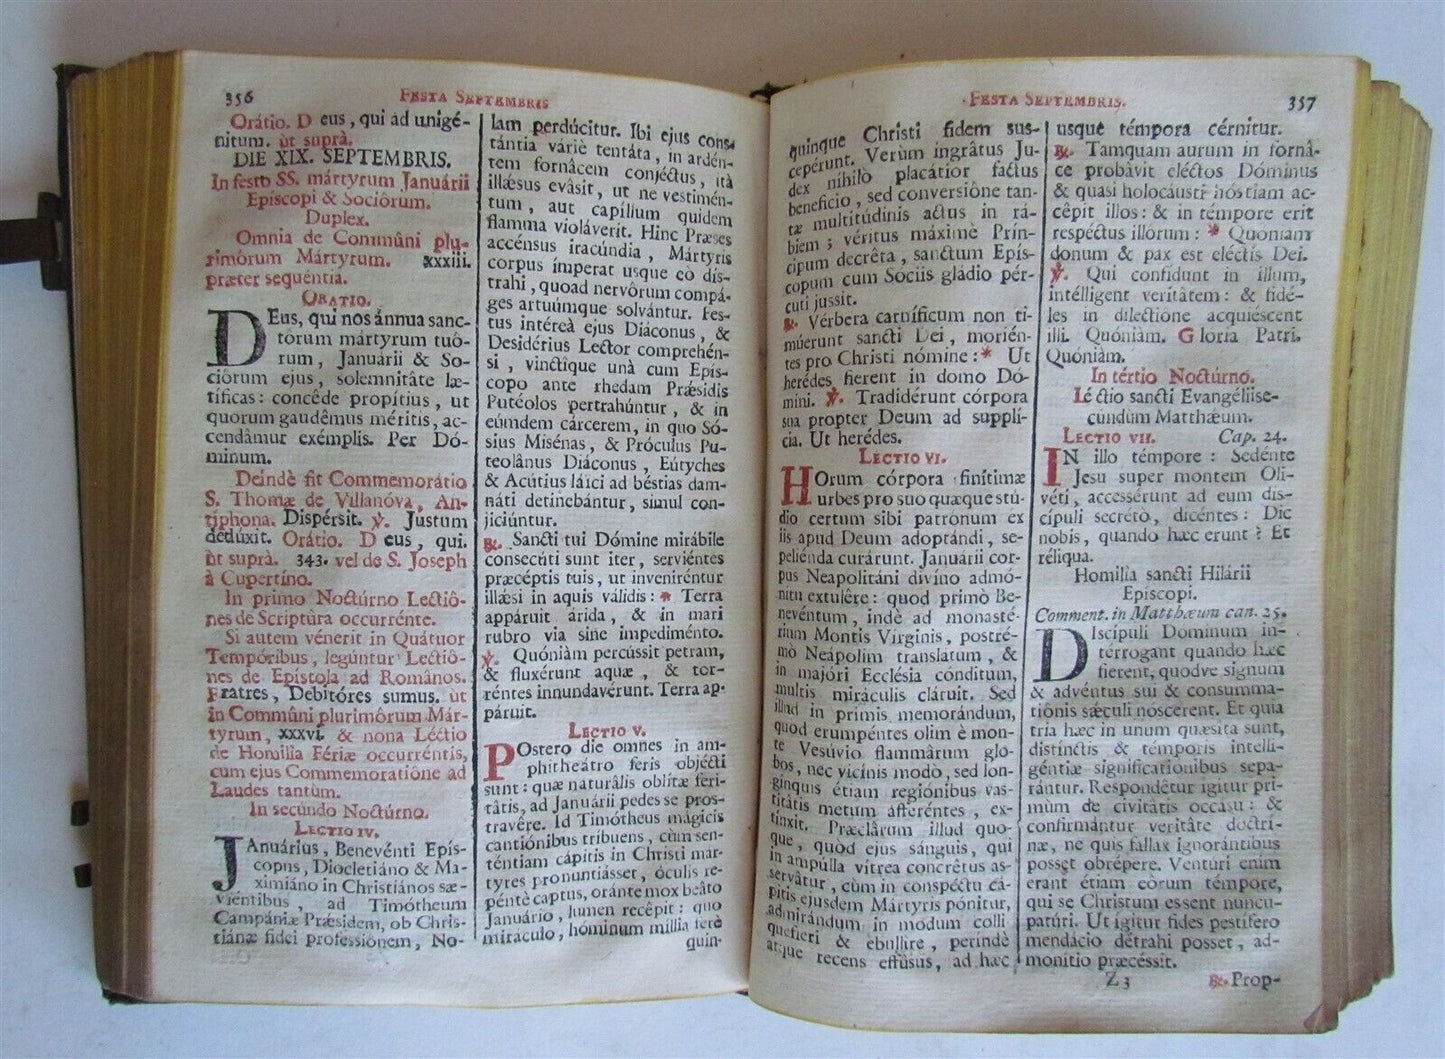 356 FESTA SEPTEMBRIS
Orátio. D eus, qui ad unigé-
nitum. ùt suprà.
DIE XIX. SEPTEMBRIS.
In festo SS. mártyrum Januárii
Epíscopi & Sociórum.
Duplex.
Omnia de Commûni plu-
rimôrum Mártyrum. xxxiii.
præter sequéntia.
ORATIO.
DEus, qui nos ánnua sanc-
tôrum mártyrum tuô-
rum, Januárii & So-
ciôrum ejus, solemnitâte læ-
tíficas: concêde propítius, ut
quorum gaudêmus méritis, ac-
cendâmur exémplis. Per Dó-
minum.
Deindè fit Commemorátio
S. Thomæ de Villanóva, An-
tiphona. Dispérsit. ℣. Justum
dedúxit. Orátio. D eus, qui.
ùt suprà. 343. vel de S. Joseph
à Cupertíno.
In primo Noctúrno Lectiô-
nes de Scriptûra occurrénte.
Si autem vénerit in Quátuor
Tempóribus, legúntur Lectiô-
nes de Epístola ad Românos.
Fratres, Debitóres sumus. ùt
in Commûni plurimôrum Már-
tyrum, xxxvi. & nona Léctio
de Homilia Fériæ occurréntis,
cum ejus Commemoratiône ad
Laudes tantùm.
In secúndo Noctúrno.
LECTIO IV.
JAnuárius, Benevénti Epís-
copus, Diocletiáno & Ma-
ximiáno in Christiános sæ-
viéntibus, ad Timótheum
Campániæ Præsidem, ob Chris-
tiánæ fidei professiónem, No-
lam perdúcitur. Ibi ejus cons-
tántia váriè tentáta, in ardén-
tem fornâcem conjéctus, ità
illæsus evâsit, ut ne vestimén-
tum, aut capíllum quidem
flamma violáverit. Hinc Præses
accénsus iracúndia, Mártyris
corpus ímperat usque eò dis-
trahi, quoad nervôrum compá-
ges artuúmque solvántur. Fes-
tus intéreà ejus Diáconus, &
Desidérius Lector comprehén-
si, vinctíque unà cum Epís-
copo ante rhedam Præsidis
Putéolos pertrahúntur, & in
eúmdem cárcerem, in quo Só-
sius Misénas, & Próculus Pu-
teolânus Diáconus, Eútyches
& Acútius láïci ad béstias dam-
náti detinebántur, simul con-
jiciúntur.
℟. Sancti tui Dómine mirábile
consecúti sunt iter, serviéntes
præcéptis tuis, ut inveniréntur
illæsi in aquis válidis: * Terra
appáruit árida, & in mari
rubro via sine impediménto.
℣. Quóniàm percússit petram,
& fluxérunt aquæ, & tor-
réntes inundavérunt. Terra ap-
páruit.
LECTIO V.
POstero die omnes in am-
phitheátro feris objécti
sunt: quæ naturâlis oblítæ feri-
tâtis, ad Januárii pedes se pros-
travére. Id Timótheus mágicis
cantiónibus tríbuens, cùm sen-
téntiam cápitis in Christi mar-
tyres pronuntiásset, óculis re-
pénte captus, oránte mox beâto
Januário, lumen recêpit: quo
miráculo, hóminum míllia ferè
quin-
FESTA SEPTEMBRIS. 357
quinque Christi fidem sus-
cepérunt. Verùm ingrâtus Ju-
dex níhilo placátior factus
beneficio, sed conversiône tan-
tæ multitúdinis actus in rá-
biem; véritus máximè Prín-
cipum decrêta, sanctum Epís-
copum cum Sociis gládio pér-
cuti jussit.
℟. Vérbera carníficum non ti-
múerunt sancti Dei, morién-
tes pro Christi nómine: * Ut
herédes fierent in domo Dó-
mini. ℣. Tradidérunt córpora
sua propter Deum ad supplí-
cia. Ut herédes.
LECTIO VI.
HOrum córpora finítimæ
urbes pro suo quæque stú-
dio certum sibi patronum ex
iis apud Deum adoptándi, se-
peliénda curárunt. Januárii cor-
pus Neapolitáni divíno admó-
nitu extulêre: quod primò Be-
nevéntum, indè ad monasté-
rium Montis Vírginis, postré-
mò Neápolim translatum, &
in majóri Ecclésia conditum,
multis miráculis cláruit. Sed
illud in primis memorándum,
quod erumpéntes olim è mon-
te Vesúvio flammârum glo-
bos, nec vicínis modò, sed lon-
gínquis étiam regiónibus vas-
titâtis metum afferéntes, ex-
tinxit. Præclârum illud quo-
que, quòd ejus sánguis, qui
in ampúlla vítrea concrêtus as-
servâtur, cùm in conspéctu cá-
pitis ejusdem Mártyris pónitur,
admirándum in modum colli-
quefíeri & ebullíre, perindè
atque recens effûsus, ad hæc
usque témpora cérnitur.
℟. Tamquam aurum in fornâ-
ce probâvit eléctos Dóminus
& quasi holocáusti hóstiam ac-
cêpit illos: & in témpore erit
respéctus illórum: * Quoniam
donum & pax est eléctis Dei.
℣. Qui confídunt in illum,
intélligent veritâtem: & fidé-
les in dilectióne acquiéscent
illi. Quóniàm. G loria Patri.
Quóniàm.
In tértio Noctúrno.
Lé ctio sancti Evangéliise-
cúndùm Matthæum.
LECTIO VII. Cap. 24.
IN illo témpore: Sedénte
Jesu super montem Oli-
véti, accessérunt ad eum dis-
cípuli secréto, dicéntes: Dic
nobis, quando hæc erunt? Et
réliqua.
Homilía sancti Hilárii
Epíscopi.
Comment. in Matthæum can. 25.
DIscípuli Dominum in-
térrogant quando hæc
fierent, quodve signum
& advéntus sui & consumma-
tiônis sæculi noscerent. Et quia
tria hæc in unum quæsita sunt,
distínctis & témporis intelli-
géntiæ significatiónibus sepa-
rántur. Respondétur ígitur pri-
mùm de civitâtis occásu: &
confirmántur veritâte doctrí-
næ, ne quis fallax ignorántibus
posset obrépere. Ventúri enim
erant étiam eórum témpore,
qui se Christum essent nuncu-
patúri. Ut ígitur fides pestífero
mendácio détrahi posset, ad-
monítio præcéssit.
Z 3 ℟. Prop-